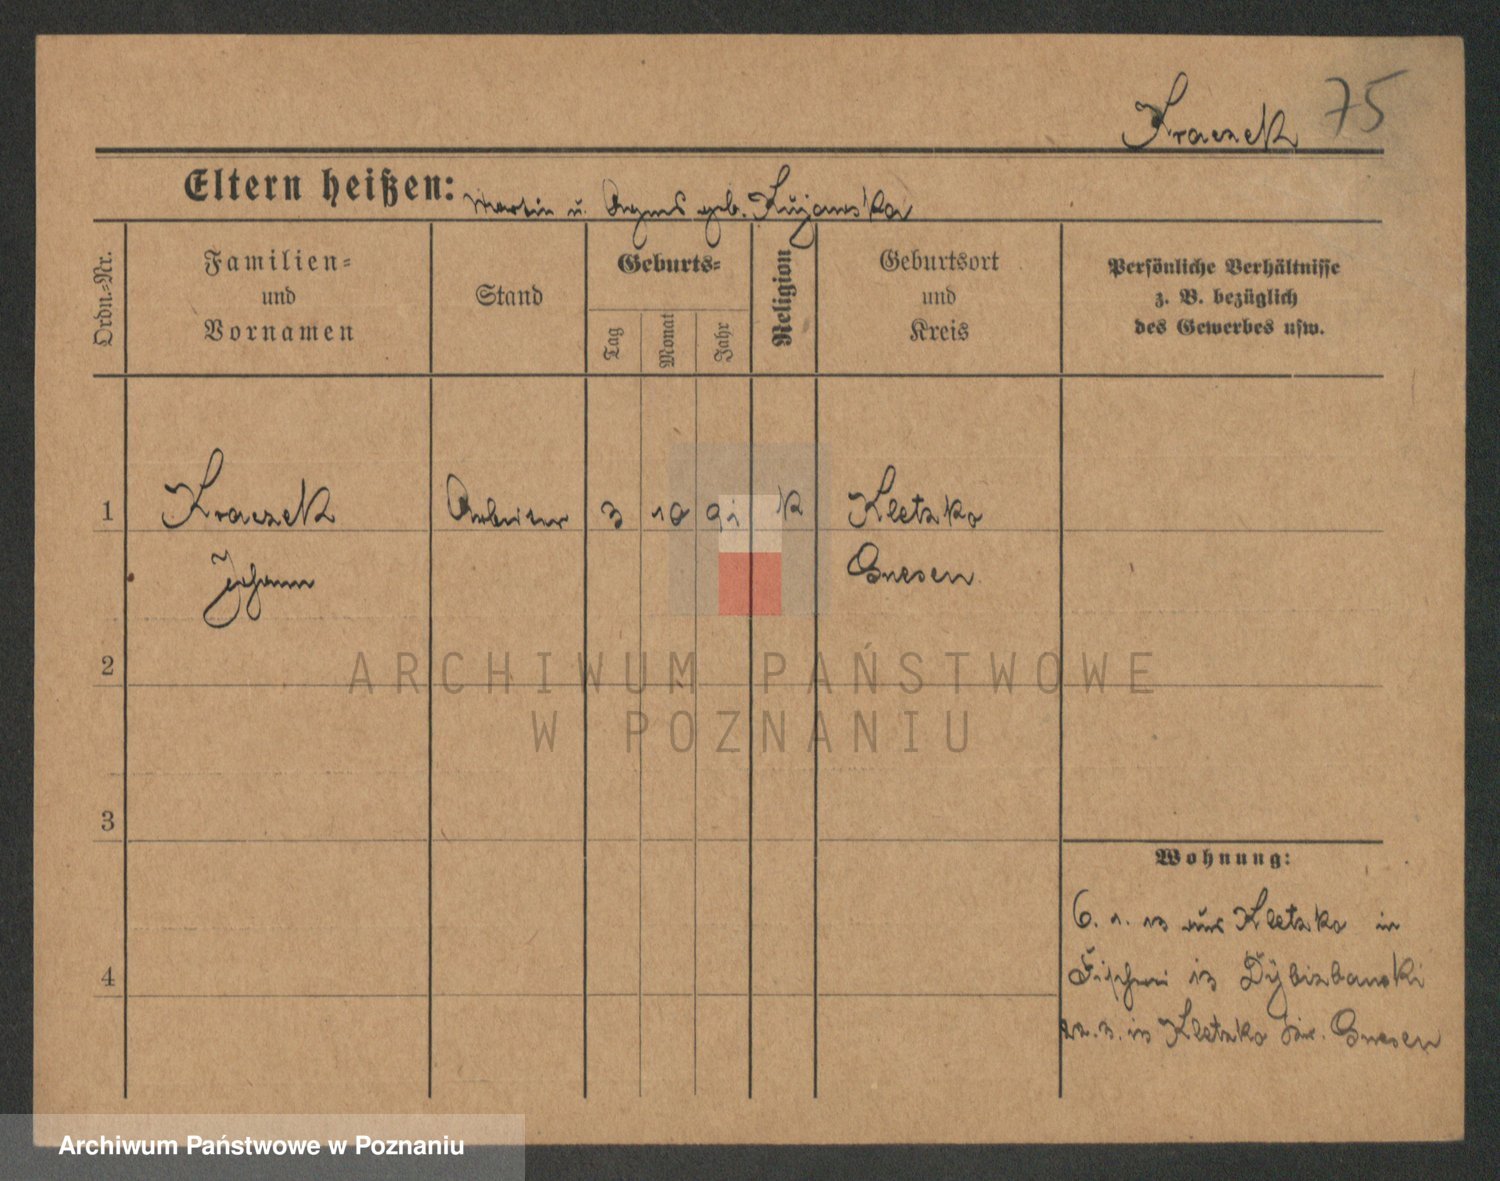 Kraczek 75
Eltern heißen: Martin u. Agnes geb. Kujawska
Ordn.-Nr.
Familien-
und
Vornamen
Stand
Geburts-
Tag
Monat
Jahr
Religion
Geburtsort
und
Kreis
Persönliche Verhältnisse
z. B. bezüglich
des Gewerbes usw.
1 Kraczek Arbeiter 3 10 91 K Kletzko
Johann Gnesen
2
ARCHIWUM PAŃSTWOWE
W POZNANIU
3
Wohnung:
6. 1. 13 aus Kletzko in
Fischerei 13
4
22. 3. in Kletzko Gnesen
Archiwum Państwowe w Poznaniu